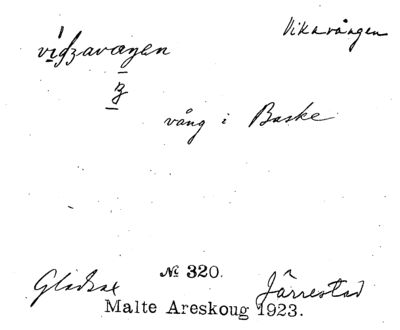 Vikavången
vång i Baske
№ 320.
Gladsax Järrestad
Malte Areskoug 1923.